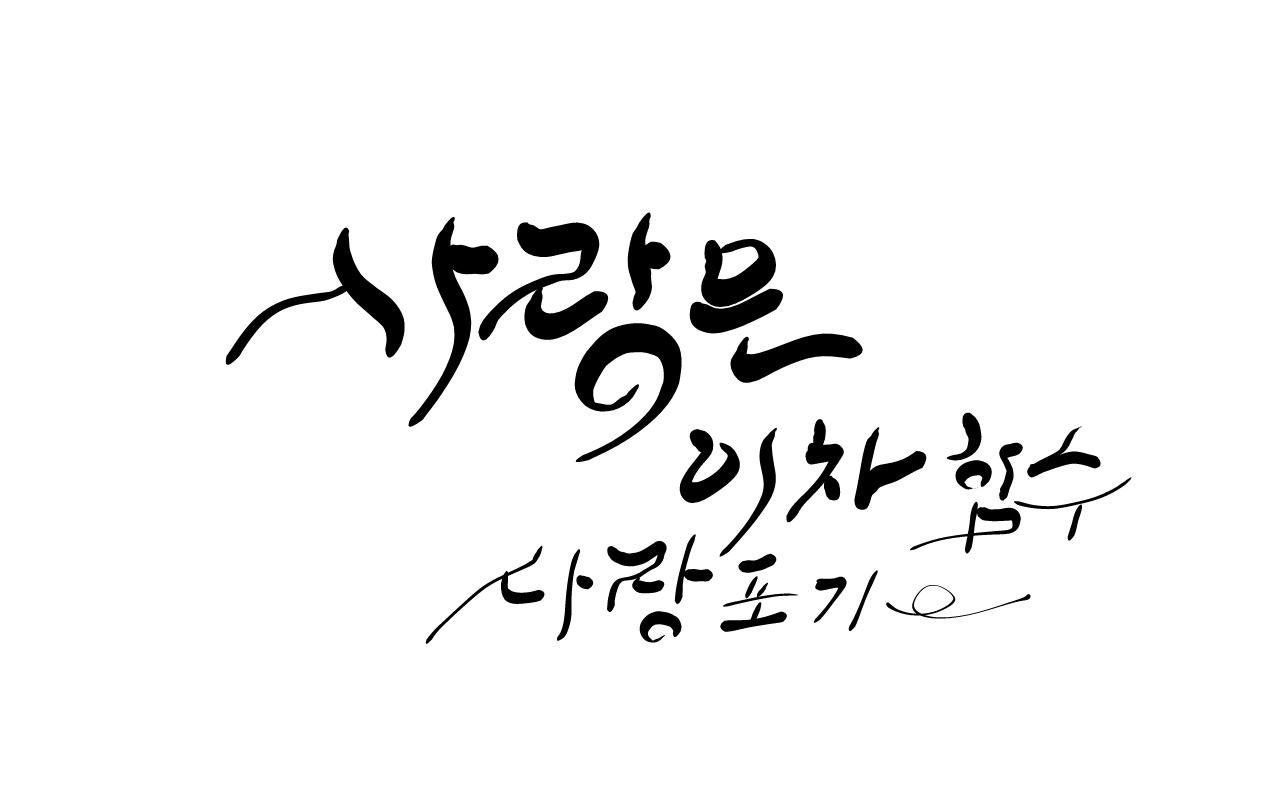 사랑은
이차함수
사랑포기